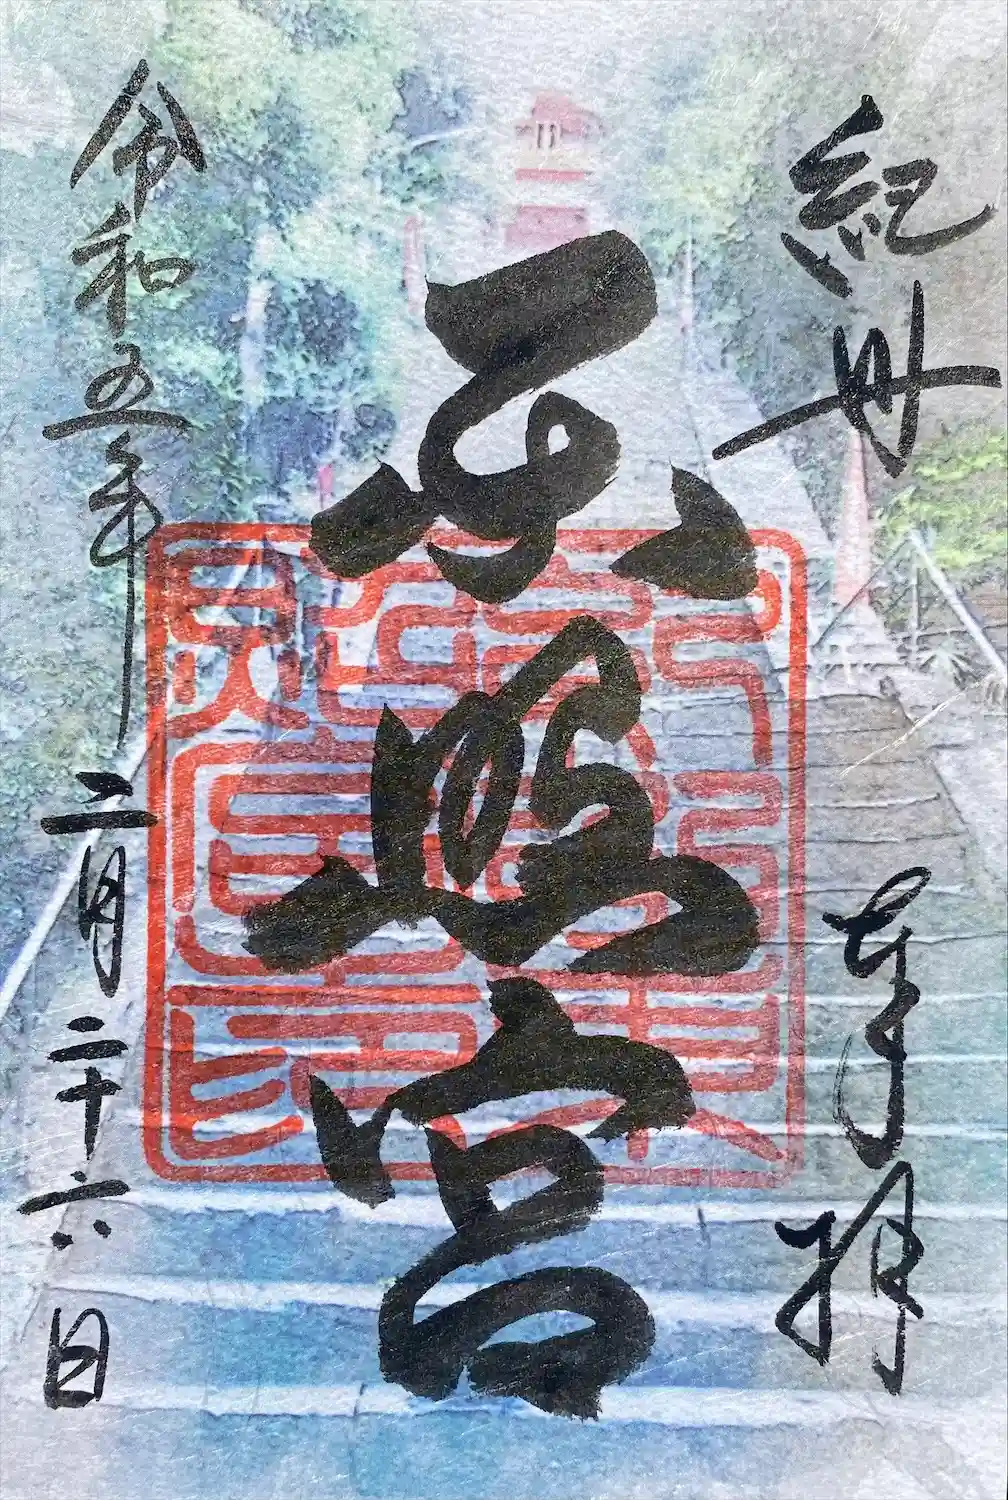 紀州　奉拝
東照宮
令和五年二月二十六日